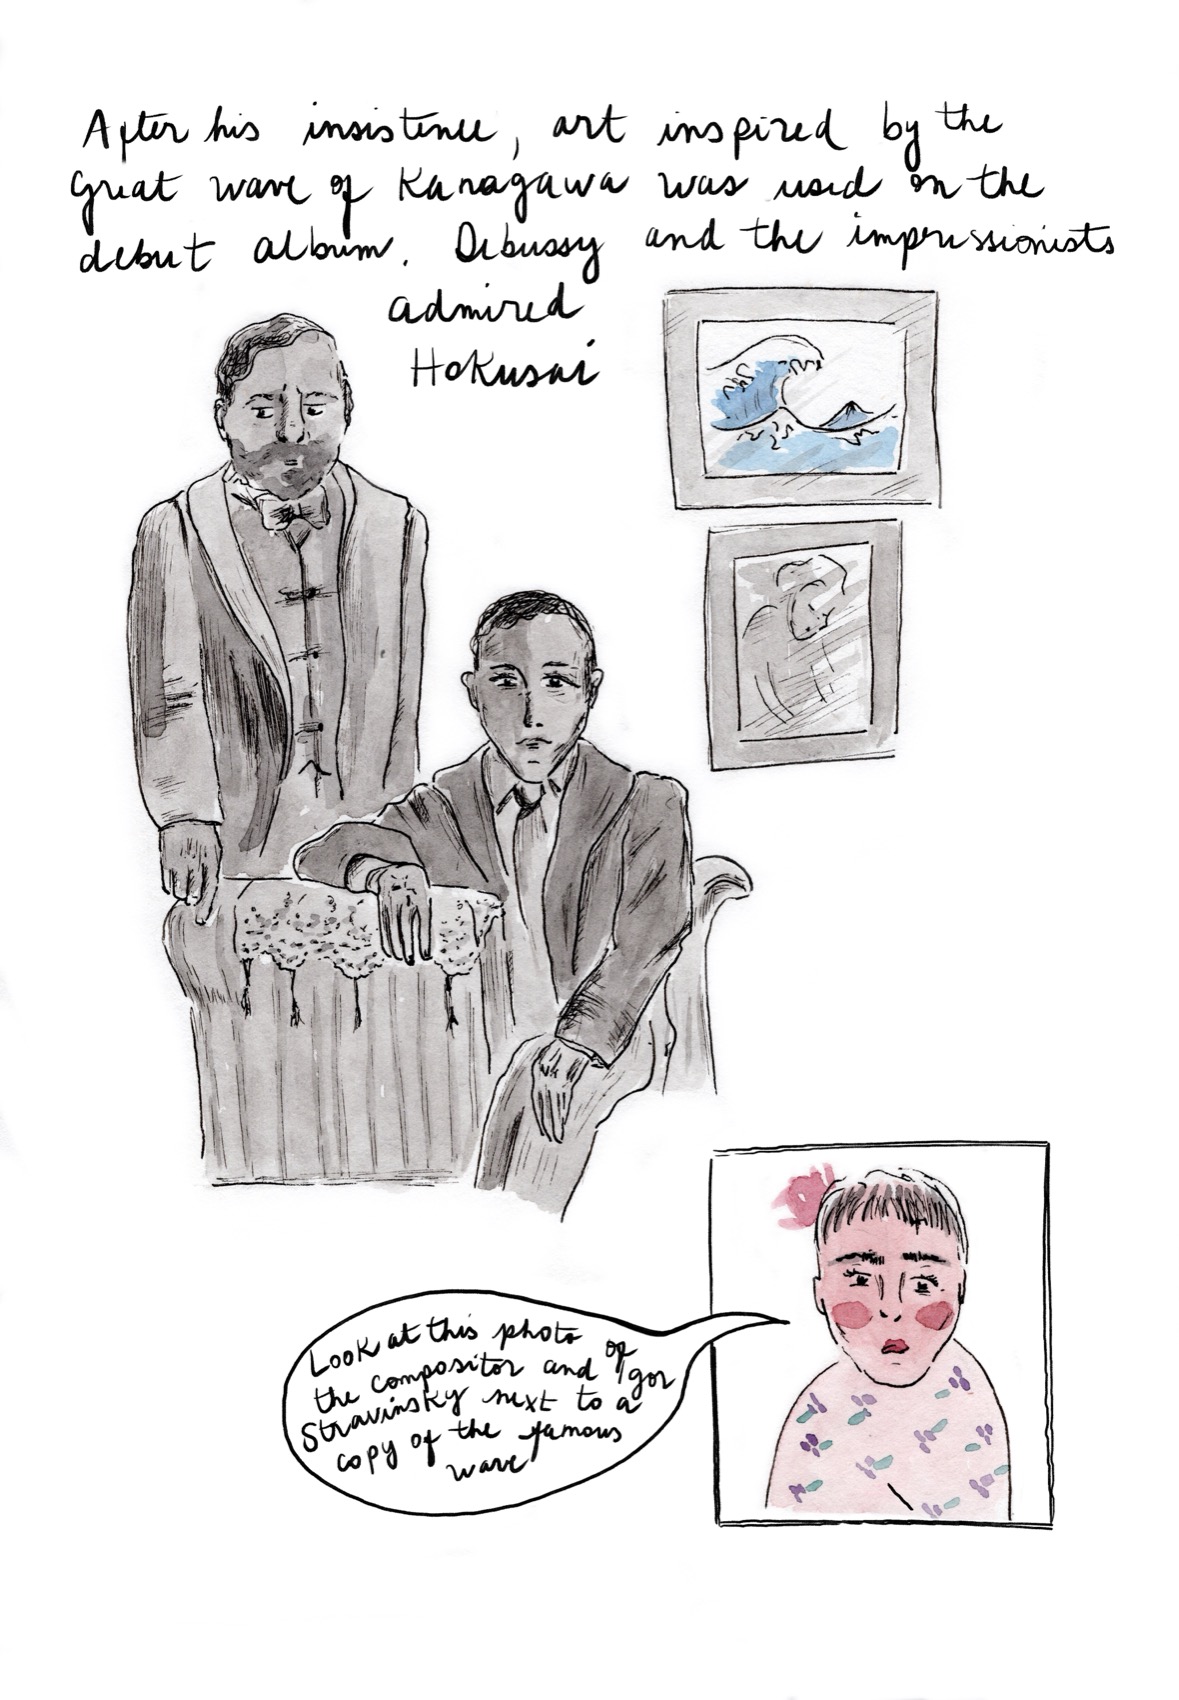 After his insistence, art inspired by the
Great wave of Kanagawa was used on the
debut album. Debussy and the impressionists
admired
Hokusai
Look at this photo of
the compositor and Igor
Stravinsky next to a
copy of the famous
wave